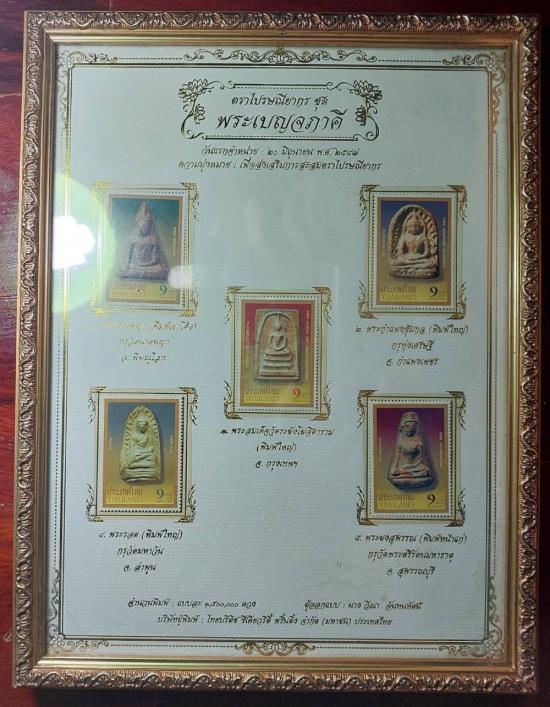 ตราไปรษณียากร ชุด
พระเบญจภาคี
วันแรกจำหน่าย : ๒๐ มิถุนายน พ.ศ. ๒๕๔๘
ความมุ่งหมาย : เพื่อส่งเสริมการสะสมตราไปรษณียากร
ประเทศไทย 9
THAILAND
(พิมพ์
กรุวัดนางพญา
จ. พิษณุโลก
ประเทศไทย 9
THAILAND
๒. พระกำแพงซุ้มกอ (พิมพ์ใหญ่)
กรุทุ่งเศรษฐี
จ. กำแพงเพชร
ประเทศไทย 9
THAILAND
๑. พระสมเด็จวัดระฆังโฆสิตาราม
(พิมพ์ใหญ่)
จ. กรุงเทพฯ
ประเทศไทย 9
THAILAND
๔. พระรอด (พิมพ์ใหญ่)
กรุวัดมหาวัน
จ. ลำพูน
ประเทศไทย 9
THAILAND
๕. พระผงสุพรรณ (พิมพ์หน้าแก่)
กรุวัดพระศรีรัตนมหาธาตุ
จ. สุพรรณบุรี
จำนวนพิมพ์ : แบบละ ๑,๕๐๐,๐๐๐ ดวง ผู้ออกแบบ : นาง วีณา จันทนทัศน์
บริษัทผู้พิมพ์ : ไทยบริติช ซีเคียวริตี้ พริ้นติ้ง จำกัด (มหาชน) ประเทศไทย